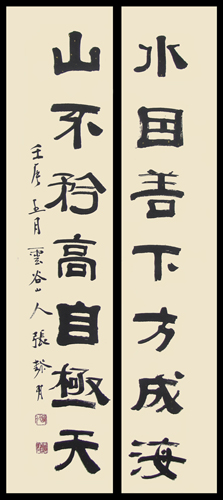 水因善下方成海
山不矜高自極天
壬辰五月雲谷山人張